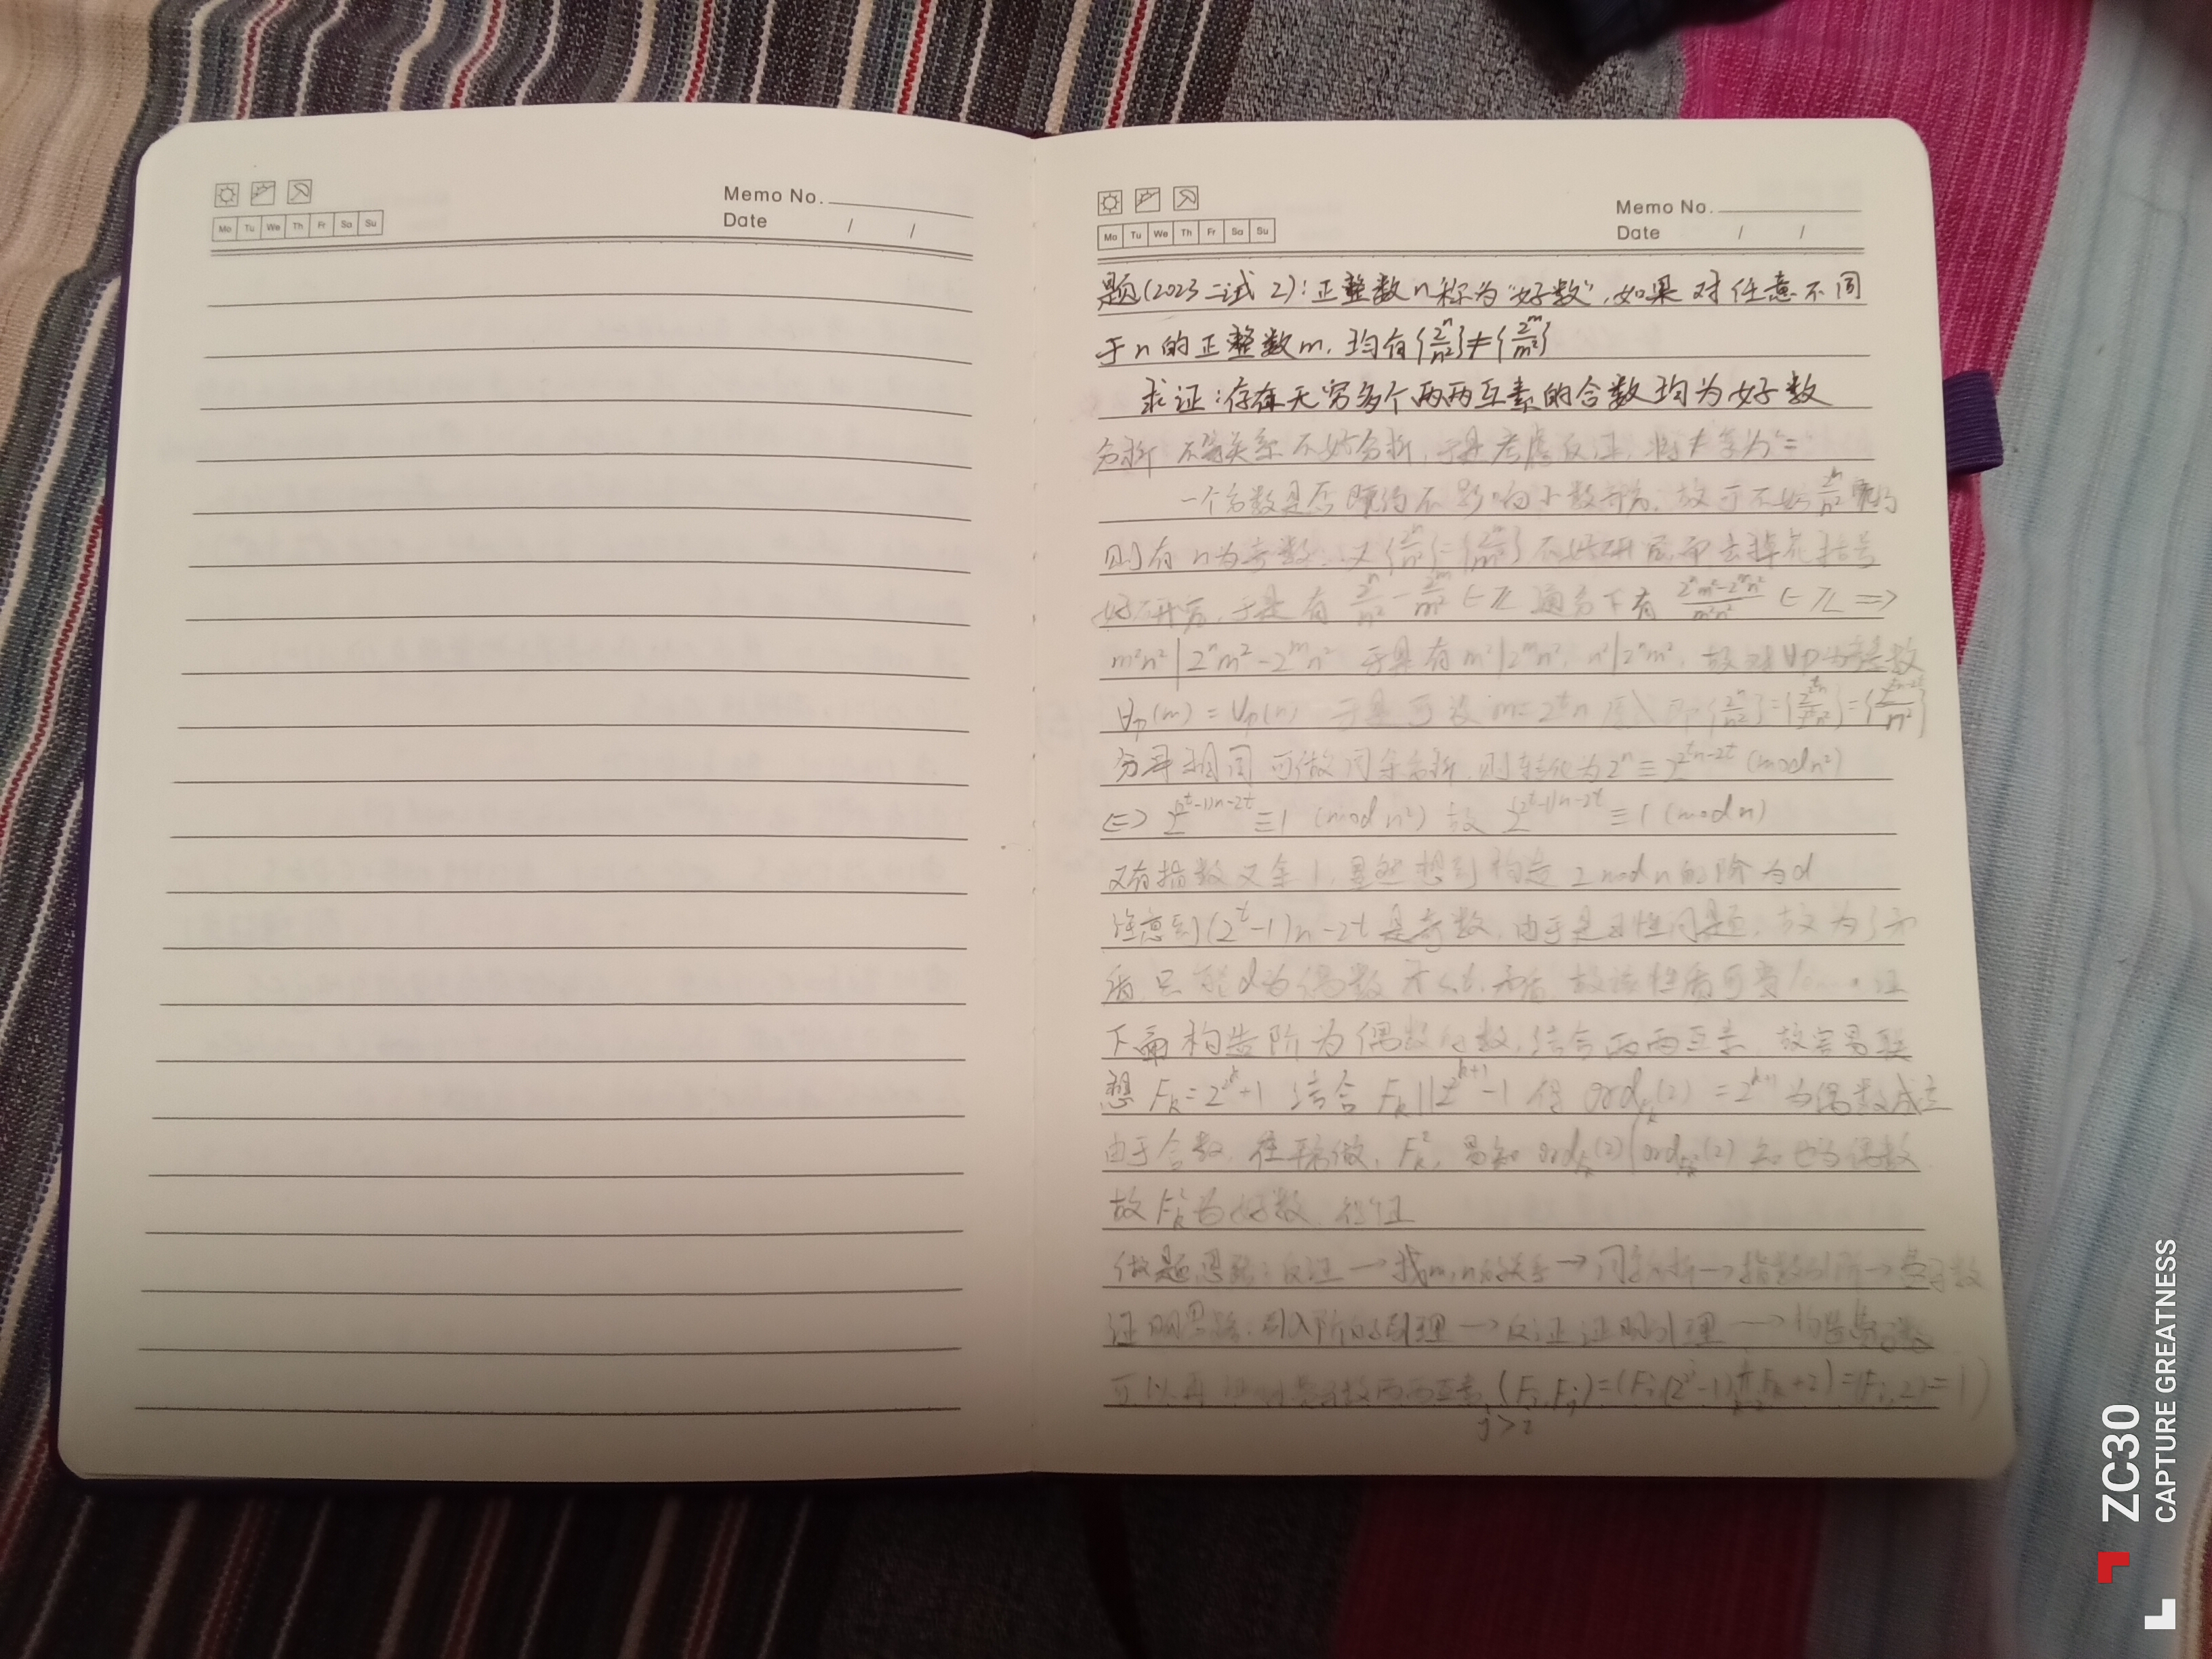 Memo No.
Date / /
Mo Tu We Th Fr Sa Su
Memo No.
Date / /
Mo Tu We Th Fr Sa Su
题(2023二试 2):正整数n称为“好数”,如果对任意不同
于n的正整数m,均有{2^n/n²}≠{2^m/m²}
求证:存在无穷多个两两互素的合数均为好数
分析 不等关系不好分析,于是考虑反证,将≠变为“=
一个分数是否既约不影响小数部分,故可不妨2^n/n²既约
则有n为奇数.又{2^n/n²}={2^m/m²}不好研究,而去掉花括号
好研究,于是有 2^n/n² - 2^m/m² ∈ Z 通分下有 (2^n m²-2^m n²)/(m²n²) ∈ Z ⇒
m²n² | 2^n m² - 2^m n² 于是有 m²|2^m n², n²|2^n m², 故对∀p为奇素数
Vp(m) = Vp(n) 于是可设 m=2^t n
分母相同 可做同余分析,则转化为2^n ≡ 2^(2^t n-2t) (mod n²)
⇔ 2^((2^t-1)n-2t) ≡ 1 (mod n²) 故 2^((2^t-1)n-2t) ≡ 1 (mod n)
又有指数又余1,显然想到构造 2 mod n的阶为d
注意到(2^t-1)n-2t 是奇数,由于是 性问题,故为了矛
盾,只能d为偶数 矛盾,故该性质可
下面构造阶为偶数的数,结合两两互素,故容易联
想 F_k=2^(2^k)+1 结合 F_k||2^(2^(k+1))-1 得 ord_(F_k)(2) = 2^(k+1) 为偶数成立
由于合数,往平方做,F_k²,易知 ord_(F_k)(2)|ord_(F_k²)(2) 知也为偶数
故F_k²为好数,得证
做题思路:反证→找m,n的关系→同余分析→指数引阶→费马数
证明思路:引入阶的引理→反证证明引理→构造费马数
可以再 费马数两两互素 (F_i,F_j)=
j>i
ZC30
CAPTURE GREATNESS